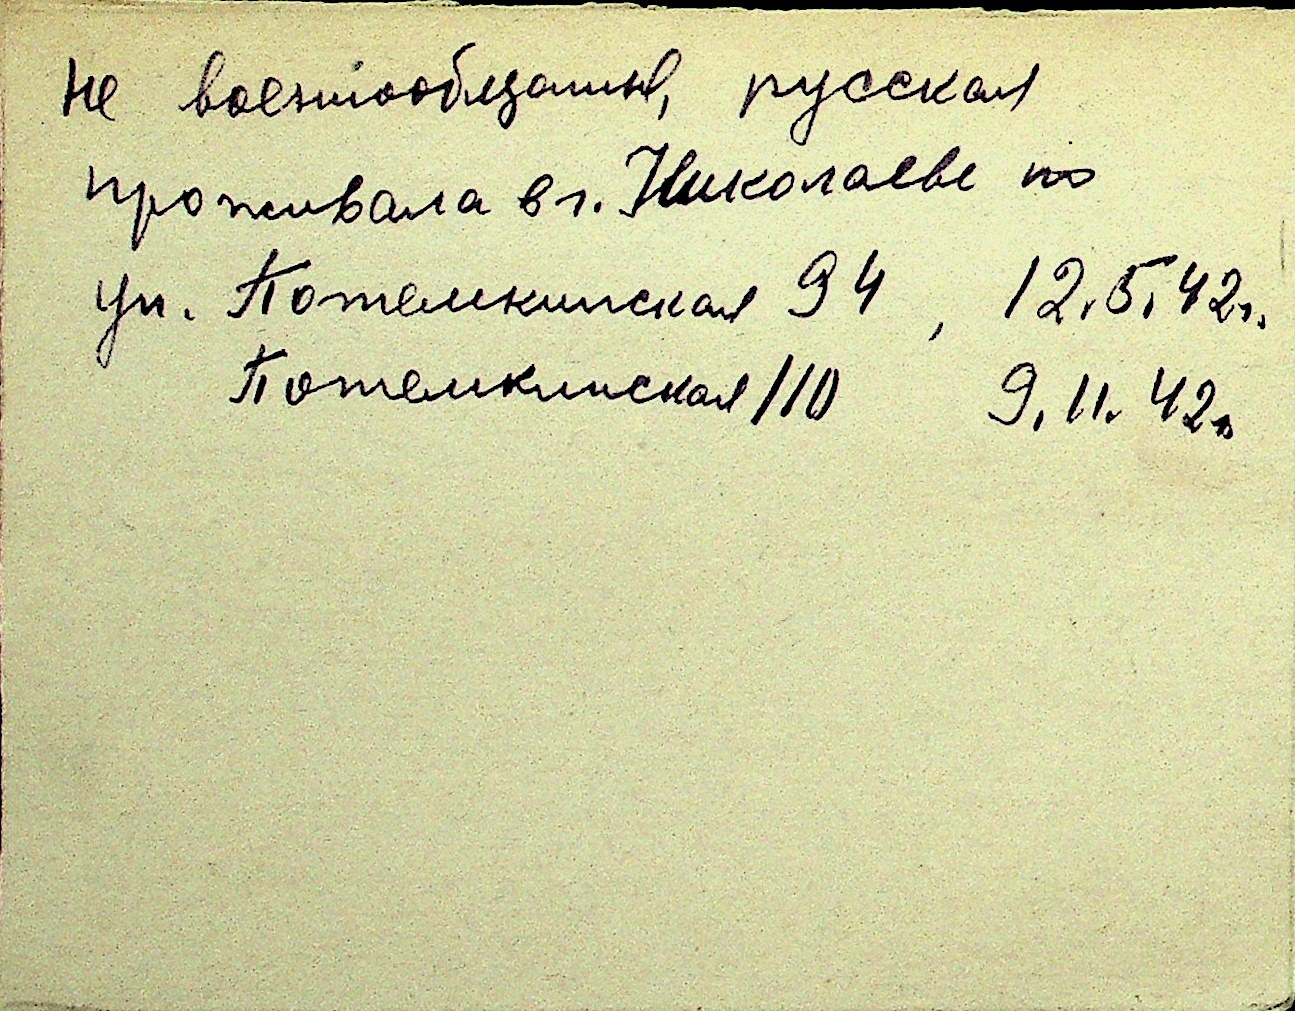 Не военнообязаный, русская
проживала в г. Николаеве по
ул. Потемкинская 94, 12.5.42г.
Потемкинская 110 9.11.42г.